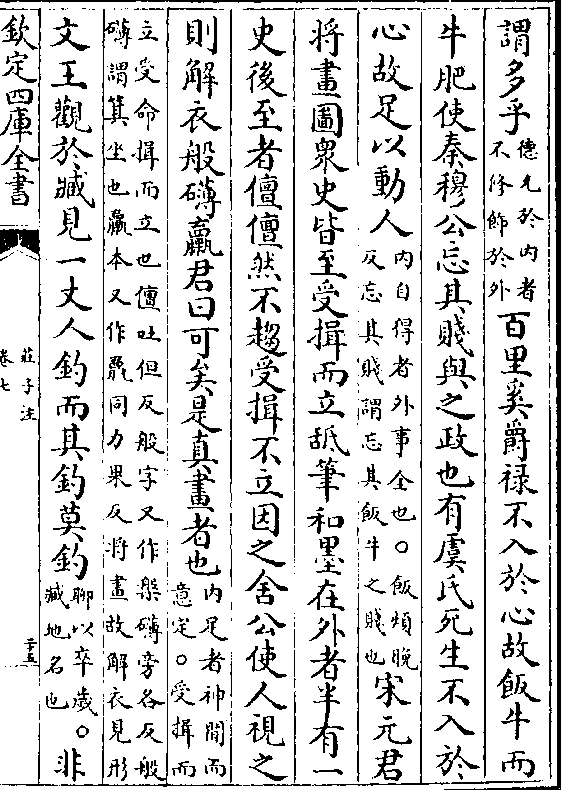 謂多乎德充於内者
不修飾於外百里奚爵禄不入於心故飯牛而
牛肥使秦穆公忘其賤與之政也有虞氏死生不入於
心故足以動人内自得者外事全也○飯煩晚
反忘其賤謂忘其飯牛之賤也宋元君
將畫圖衆史皆至受揖而立舐筆和墨在外者半有一
史後至者儃儃然不趨受揖不立因之舍公使人視之
則解衣般礴臝君曰可矣是真畫者也内足者神閒而
意定○受揖而
立受命揖而立也儃吐但反般字又作槃礴旁各反般
礴謂箕坐也臝本又作羸同力果反將畫故解衣見形
文王觀於臧見一丈人釣而其釣莫釣聊以卒歲○
臧地名也非
欽定四庫全書
莊子注
卷七
二十五